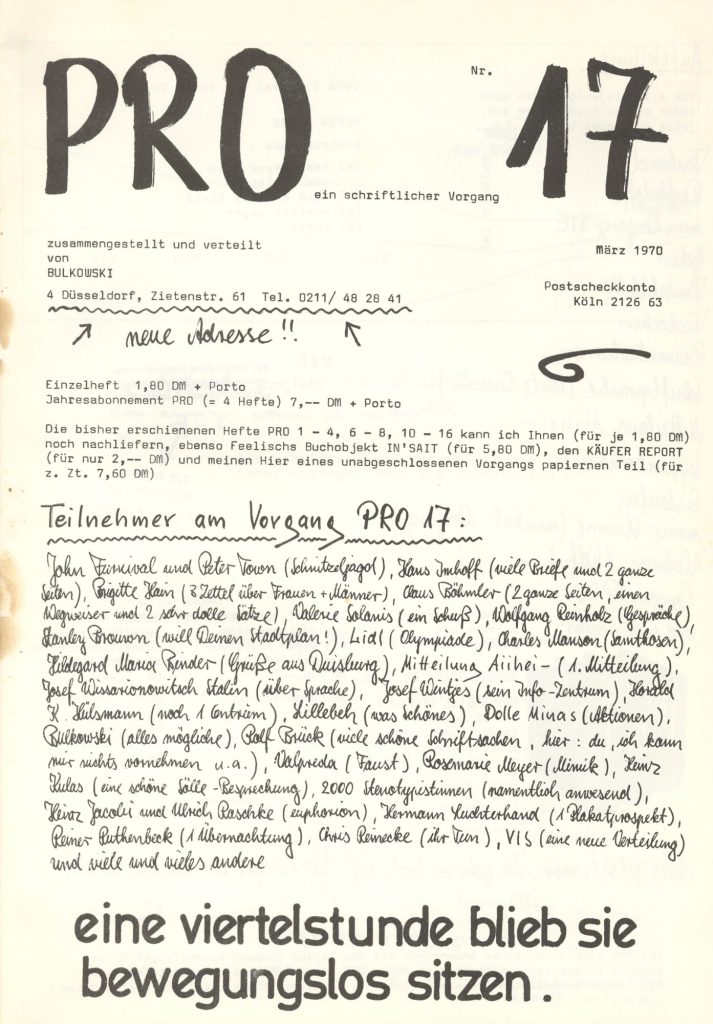 PRO Nr. 17
ein schriftlicher Vorgang
zusammengestellt und verteilt
von
BULKOWSKI
März 1970
4 Düsseldorf, Zietenstr. 61 Tel. 0211/ 48 28 41
Postscheckkonto
Köln 2126 63
neue Adresse!!
Einzelheft 1,80 DM + Porto
Jahresabonnement PRO (= 4 Hefte) 7,-- DM + Porto
Die bisher erschienenen Hefte PRO 1 - 4, 6 - 8, 10 - 16 kann ich Ihnen (für je 1,80 DM)
noch nachliefern, ebenso Feelischs Buchobjekt IN'SAIT (für 5,80 DM), den KÄUFER REPORT
(für nur 2,-- DM) und meinen Hier eines unabgeschlossenen Vorgangs papiernen Teil (für
z. Zt. 7,60 DM)
Teilnehmer am Vorgang PRO 17:
John Furnival und Peter Town (Schnitzeljagd), Hans Imhoff (viele Briefe und 2 ganze
Seiten), Brigitte Hain (3 Zettel über Frauen + Männer), Claus Böhmler (2 ganze Seiten, einen
Wegweiser und 2 sehr dolle Sätze), Valerie Solanis (ein Schuß), Wolfgang Reinholz (Gespräche),
Stanley Brouwn (will Deinen Stadtplan!), Lidl (Olympiade), Charles Manson (Samthosen),
Hildegard Maria Render (Grüße aus Duisburg), Mitteilung Aiihei- (1. Mitteilung),
Josef Wissarionowitsch Stalin (über Sprache), Josef Wintjes (sein Info-Zentrum), Harald
K. Hülsmann (noch 1 Centrum), Lillebeh (was Schönes), Dolle Minas (Aktionen),
Bulkowski (alles mögliche), Rolf Brück (viele schöne Schriftsachen, hier: du, ich kann
mir nichts vornehmen u.a.), Valpreda (Faust), Rosemarie Meyer (Mimik), Heinz
Kulas (eine schöne Sölle-Besprechung), 2000 Stenotypistinnen (namentlich anwesend),
Heinz Jacobi und Ulrich Raschke (euphorion), Hermann Luchterhand (1 Plakatprospekt),
Reiner Ruthenbeck (1 Übernachtung), Chris Reinecke (ihr Tun), VIS (eine neue Verteilung)
und viele und vieles andere
eine viertelstunde blieb sie
bewegungslos sitzen.